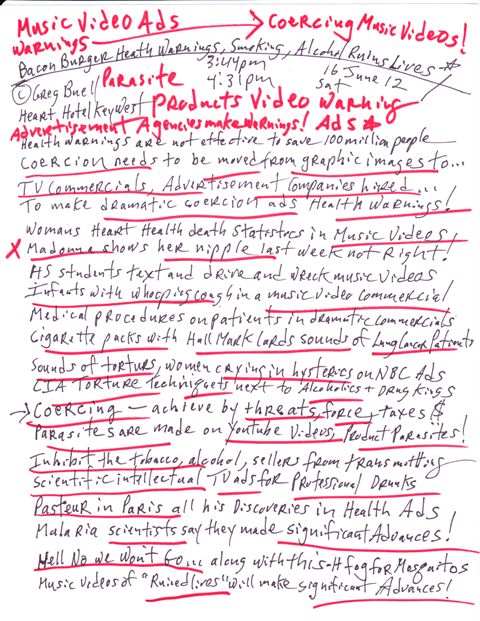 Music Video Ads → Coercing Music Videos!
Warnings
Bacon Burger Heath Warnings, Smoking, Alcohol Ruins Lives
3:44pm
© Greg Buell Parasite 4:31pm 16 June 12
Sat
Heart, Hotel Key West Products Video Warning
Advertisement Agencies make Warnings! Ads
Health warnings are not effective to save 100 million people
Coercion needs to be moved from graphic images to...
TV Commercials, Advertisement Companies hired...
To make dramatic coercion ads Health Warnings!
Womans Heart Health death Statistics in Music Videos!
X Madonna shows her nipple last week not Right!
HS students text and drive and wreck music videos
Infants with whooping cough in a music video commercial
Medical procedures on patients in dramatic commercials
Cigarette packs with Hall Mark Cards sounds of Lung Cancer Patients
Sounds of torturs, women crying in hysterics on NBC Ads
CIA Torture Techniquets next to Alcoholics + Drug Kings
→ Coercing – achieve by threats, force, taxes $
Parasites are made on Youtube Videos, Product Parasites!
Inhibit the tobacco, alcohol, sellers from transmitting
Scientific intellectual TV ads for Professional Drunks
Pasteur in Paris all his Discoveries in Health Ads
Malaria scientists say they made significant Advances!
Hell No we Won't Go... along with this - H fog for Mosquitos
Music Videos of "Ruined lives" will make significant Advances!